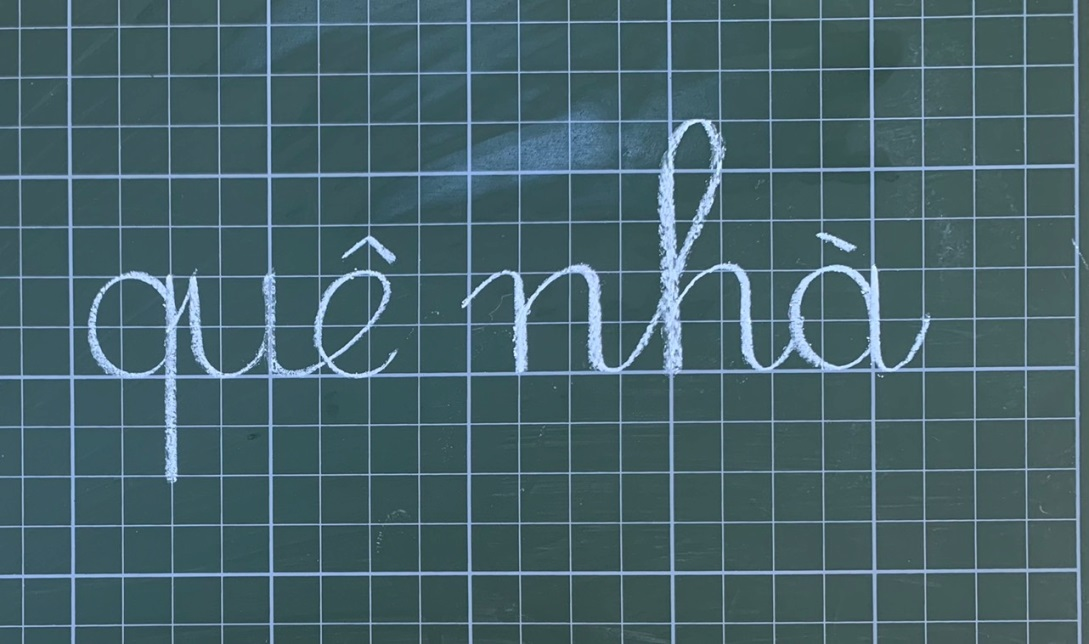 quê nhà